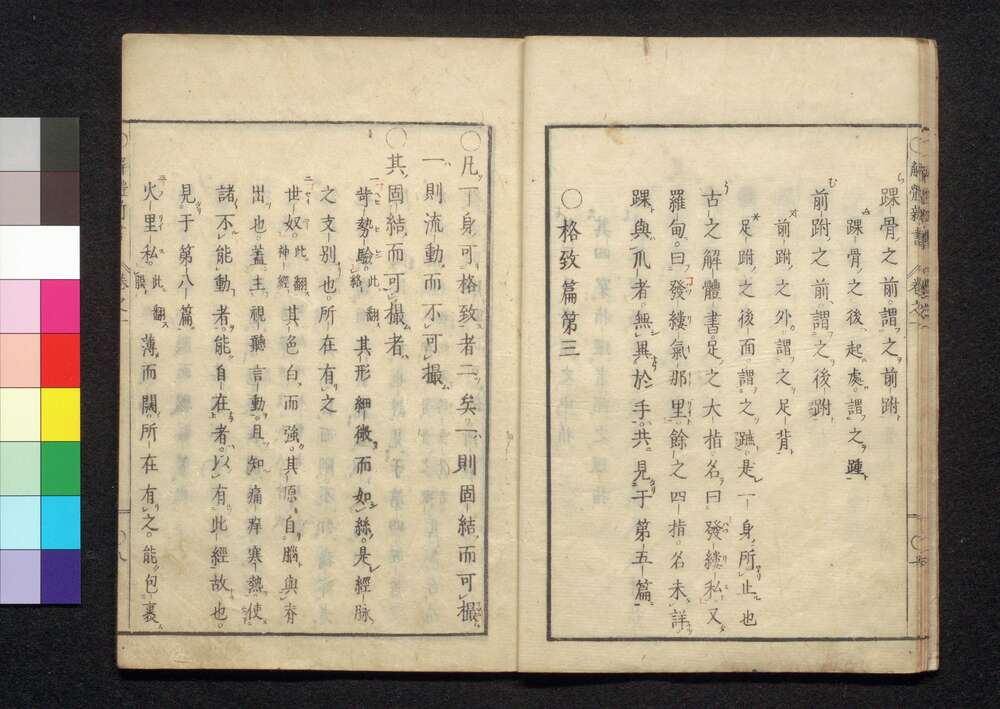 踝骨之前。謂之前跗
踝骨之後起處。謂之踵
前跗之前。謂之後跗
前跗之外。謂之足背
足跗之後面。謂之蹠。是一身所止也
古之解體書。足之大指名曰發縷私。又
羅甸。曰發縷氣那里。餘之四指。名未詳
踝與爪者。無異於手。共見于第五篇
○格致篇第三
解體新書 卷之一
○凡丁身可格致者二矣。一則固結而可撮
一則流動而不可撮
○其固結而可撮者
苛勢驗。此翻絡 其形細微而如絲。是經脉
之支別也。所在有之
世奴。此翻神經 其色白而強。其原自腦與脊
出也。蓋主視聽言動。且知痛痒寒熱。使
諸不能動者。能自在者。以有此經故也。
見于第八篇
火里私。此翻膜 薄而闊。所在有之。能包裹